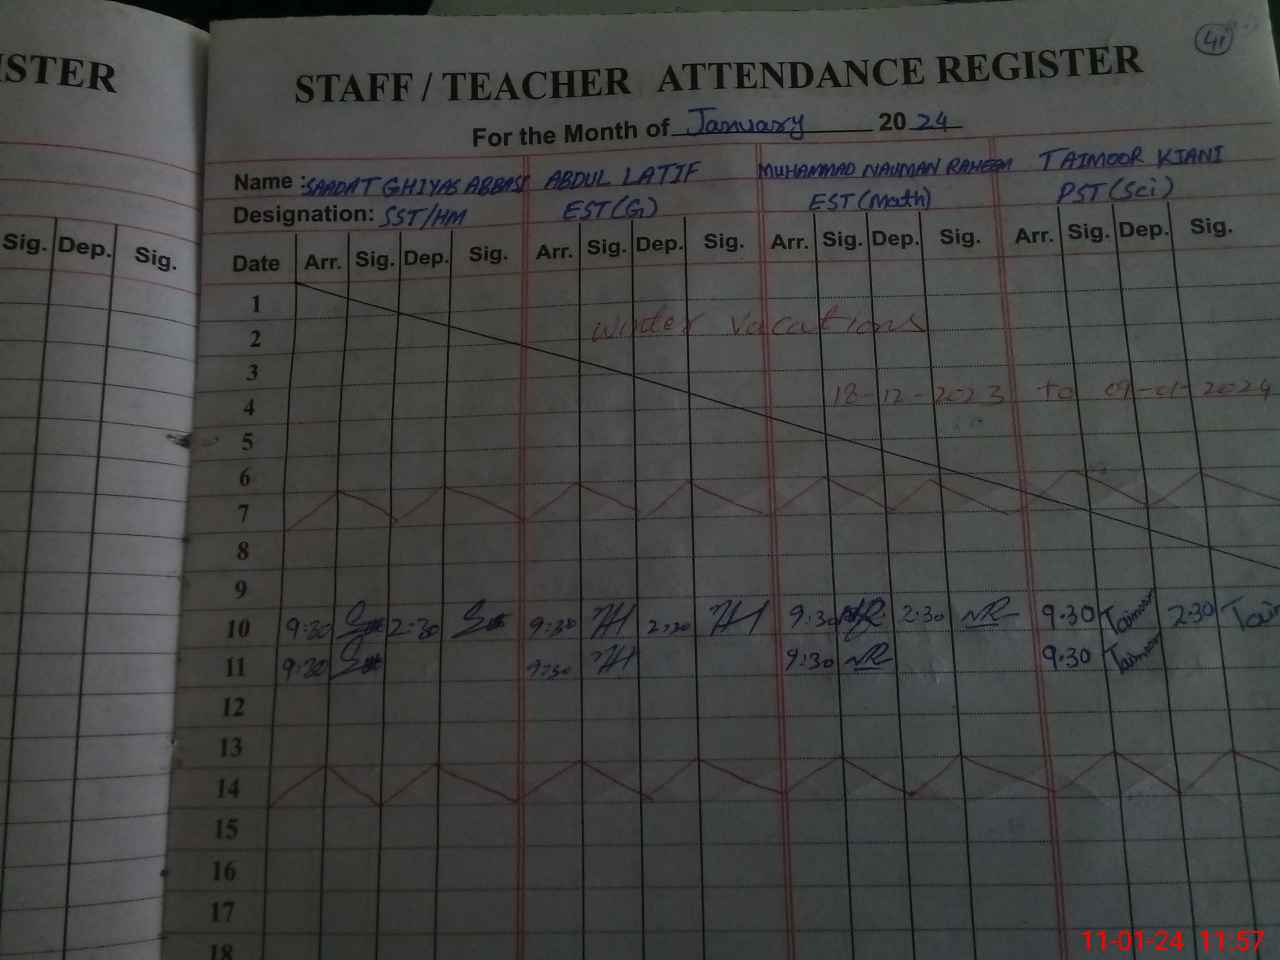 41
ISTER
STAFF / TEACHER ATTENDANCE REGISTER
For the Month of January 2024
Name : SAADAT GHIYAS ABBASI ABDUL LATIF MUHAMMAD NAUMAN RAHEEM TAIMOOR KIANI
Designation: SST/HM EST(G) EST(Math) PST(Sci)
Sig. Dep. Sig.
Date Arr. Sig. Dep. Sig. Arr. Sig. Dep. Sig. Arr. Sig. Dep. Sig. Arr. Sig. Dep. Sig.
1
winter vacations
2
3
18-12-2023 to 09-01-2024
4
5
6
7
8
9
10 9:30 2:30 9:30 2:30 9:30 NR 2:30 NR 9:30 Taimoor 2:30 Tai
11 9:30 9:30 9:30 NR 9:30 Taimoor
12
13
14
15
16
17
18
11-01-24 11:57